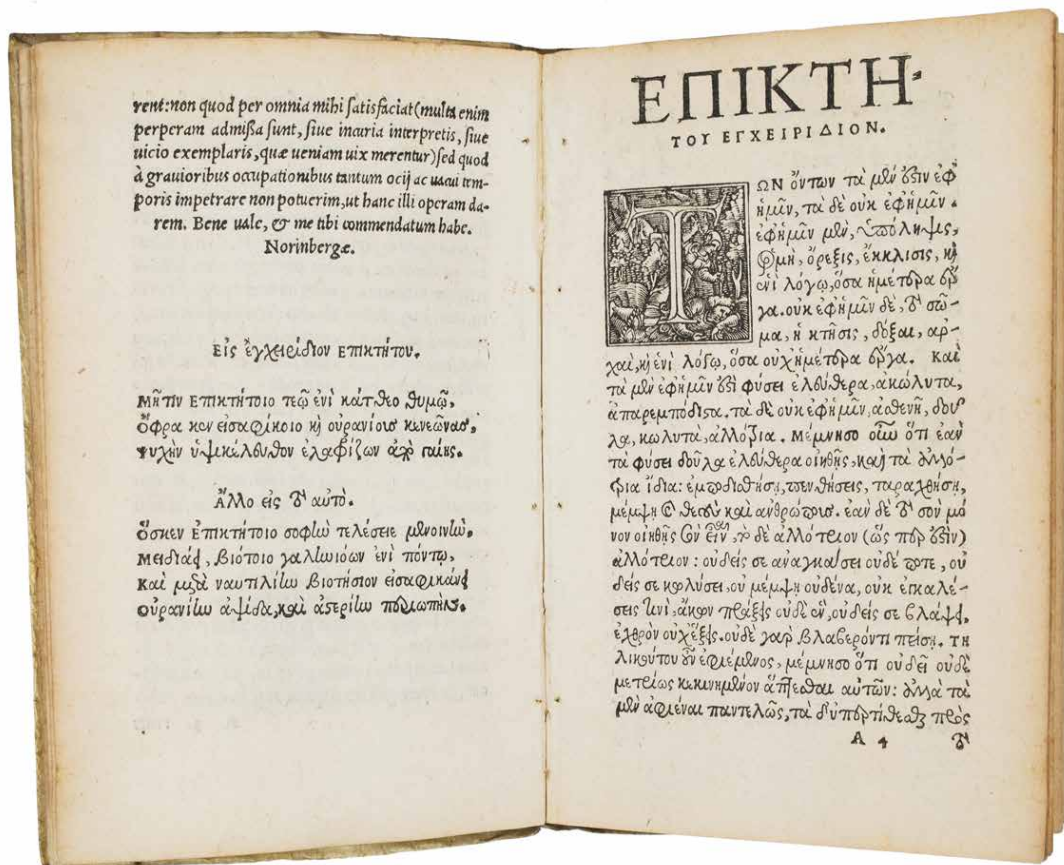 rent: non quod per omnia mihi satisfaciat (multa enim
perperam admißa sunt, siue incuria interpretis, siue
uicio exemplaris, quæ ueniam uix merentur) sed quod
à grauioribus occupationibus tantum ocij ac uacui tem-
poris impetrare non potuerim, ut hanc illi operam da-
rem. Bene uale, & me tibi commendatum habe.
Norinbergæ.
Εἰς ἐγχειρίδιον ΕΠΙΚΤΗΤΟΥ.
Μῆτιν Επικτήτοιο τεῷ ἐνὶ κάτθεο θυμῷ,
Ὄφρα κεν εἰσαφίκοιο καὶ οὐρανίους κενεῶνας,
ψυχὴν ὑψικέλευθον ἐλαφρίζων ἀπὸ γαίης.
Ἄλλο εἰς τὸ αὐτό.
Ὅσκεν Ἐπικτήτοιο σοφὴν τελέσειε μενοινὴν,
Μειδιάει, βιότοιο γαληνιόων ἐνὶ πόντῳ,
Καὶ μετὰ ναυτιλίην βιοτήσιον εἰσαφικάνει
οὐρανίην ἁψίδα, καὶ ἀστερίην περιωπήν.
ΕΠΙΚΤΗ-
ΤΟΥ ΕΓΧΕΙΡΙΔΙΟΝ.
ΤΩΝ ὄντων τὰ μέν ἐστιν ἐφ
ἡμῖν, τὰ δὲ οὐκ ἐφημῖν.
ἐφημῖν μὲν, ὑπόληψις,
ὁρμὴ, ὄρεξις, ἔκκλισις, καὶ
ἑνὶ λόγῳ, ὅσα ἡμέτερα ἔρ
γα. οὐκ ἐφημῖν δὲ, τὸ σῶ-
μα, ἡ κτῆσις, δόξαι, ἀρ-
χαὶ, καὶ ἑνὶ λόγῳ, ὅσα οὐχἡμέτερα ἔργα. Καὶ
τὰ μὲν ἐφημῖν ἐστὶ φύσει ἐλεύθερα, ἀκώλυτα,
ἀπαρεμπόδιστα. τὰ δὲ οὐκ ἐφημῖν, ἀσθενῆ, δοῦ
λα, κωλυτὰ, ἀλλότρια. Μέμνησο οὖν ὅτι ἐὰν
τὰ φύσει δοῦλα ἐλεύθερα οἰηθῇς, καὶ τὰ ἀλλό-
τρια ἴδια: ἐμποδισθήσῃ, πενθήσεις, ταραχθήσῃ,
μέμψῃ καὶ θεοὺς καὶ ἀνθρώπους. ἐὰν δὲ τὸ σὸν μό
νον οἰηθῇς σὸν εἶναι, τὸ δὲ ἀλλότριον (ὥς περ ἐστὶν)
ἀλλότριον: οὐδείς σε ἀναγκάσει οὐδέ ποτε, οὐ
δείς σε κωλύσει, οὐ μέμψῃ οὐδένα, οὐκ ἐγκαλέ-
σεις τινὶ, ἄκων πράξεις οὐδὲ ἓν, οὐδείς σε βλάψει,
ἐχθρὸν οὐχἕξεις. οὐδὲ γὰρ βλαβερόν τι πείσῃ. ΤΗ
λικούτων οὖν ἐφιέμενος, μέμνησο ὅτι οὐ δεῖ οὐδὲ
μετρίως κεκινημένον ἅπτεσθαι αὐτῶν: ἀλλὰ τὰ
μὲν ἀφιέναι παντελῶς, τὰ δ' ὑπερτίθεσθαι πρὸς
A 4 τὸ